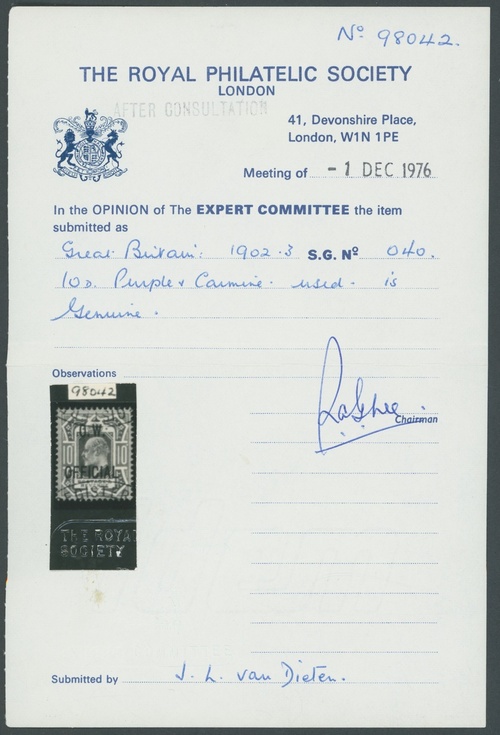 Nº 98042.
THE ROYAL PHILATELIC SOCIETY
LONDON
AFTER CONSULTATION
41, Devonshire Place,
London, W1N 1PE
Meeting of - 1 DEC 1976
In the OPINION of The EXPERT COMMITTEE the item
submitted as
Great Britain: 1902.3 S.G. Nº 040.
10D. Purple & Carmine. used. is
Genuine.
Observations
98042
O. W.
10 10
OFFICIAL
THE ROYAL
SOCIETY
Chairman
Submitted by J. L. van Dieten.